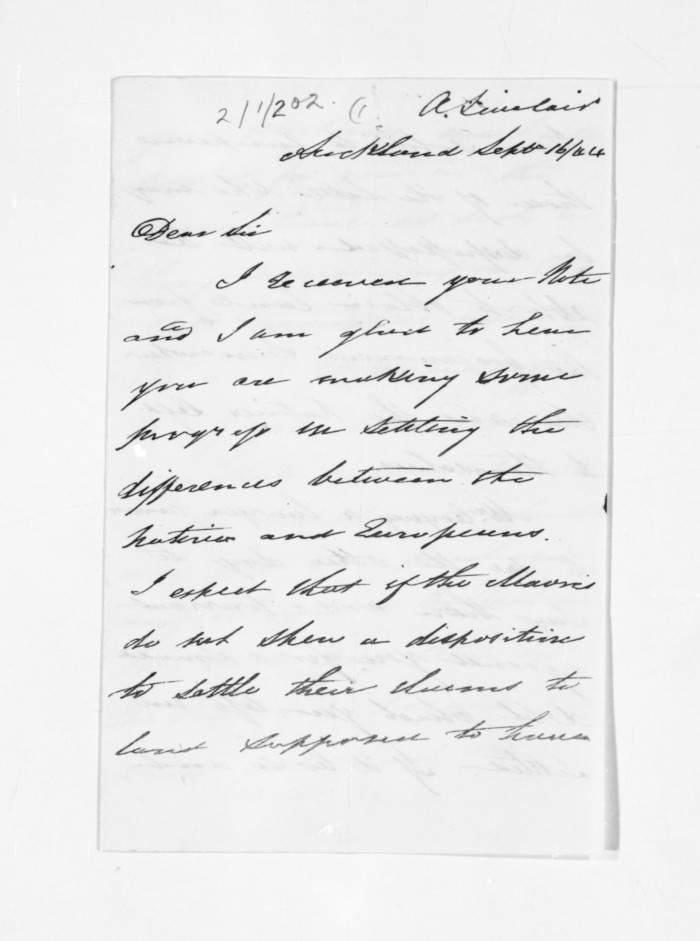 2/1/202 (1
A. Sinclair
Auckland Septr 16/44
Dear Sir
I received your Note
and I am glad to hear
you are making some
progress in settling the
differences between the
natives and Europeans.
I expect that if the Maoris
do not shew a disposition
to settle their claims to
land supposed to have